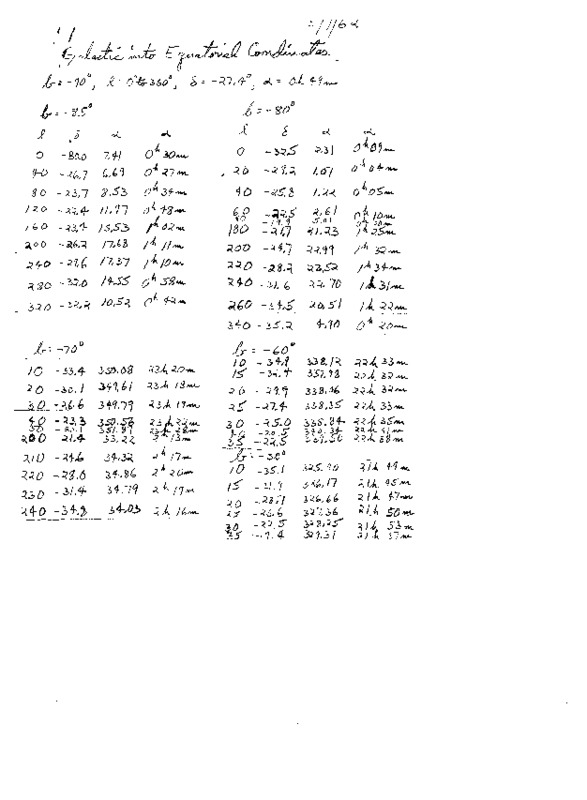 Galactic into Equatorial Coordinates.
b = -90°, l: 0 to 360°, δ = -27.4°, α = 0h 49m
b = -85°
l δ α α
0 -30.0 7.41 0h 30m
40 -26.7 6.69 0h 27m
80 -23.7 8.53 0h 34m
120 -22.4 11.97 0h 48m
160 -23.4 15.53 1h 02m
200 -26.2 17.68 1h 11m
240 -29.6 17.37 1h 10m
280 -32.0 14.55 0h 58m
320 -32.2 10.52 0h 42m
b = -80°
l δ α α
0 -32.5 2.31 0h 09m
20 -29.2 1.01 0h 04m
40 -25.8 1.22 0h 05m
60 -22.5 2.61 0h 10m
180 -21.7 21.23 1h 25m
200 -24.7 22.99 1h 32m
220 -28.2 23.52 1h 34m
240 -31.6 22.70 1h 31m
260 -34.5 20.51 1h 22m
340 -35.2 4.90 0h 20m
b = -70°
10 -33.4 350.08 23h 20m
20 -30.1 349.61 23h 18m
30 -26.6 349.79 23h 19m
40 -23.3 350.56 23h 22m
200 21.4 33.22 2h 13m
210 -24.6 34.32 2h 17m
220 -28.0 34.86 2h 20m
230 -31.4 34.79 2h 19m
240 -34.8 34.03 2h 16m
b = -60°
10 -34.9 338.12 22h 33m
15 -32.4 337.98 22h 32m
20 -29.9 338.06 22h 32m
25 -27.4 338.35 22h 33m
30 -25.0 338.84 22h 35m
35 -22.5 22h 38m
b = -50°
10 -35.1 21h 49m
15 326.17 21h 45m
20 326.66 21h 47m
25 -26.6 327.36 21h 50m
30 -22.5 328.25 21h 53m
35 329.31 21h 57m